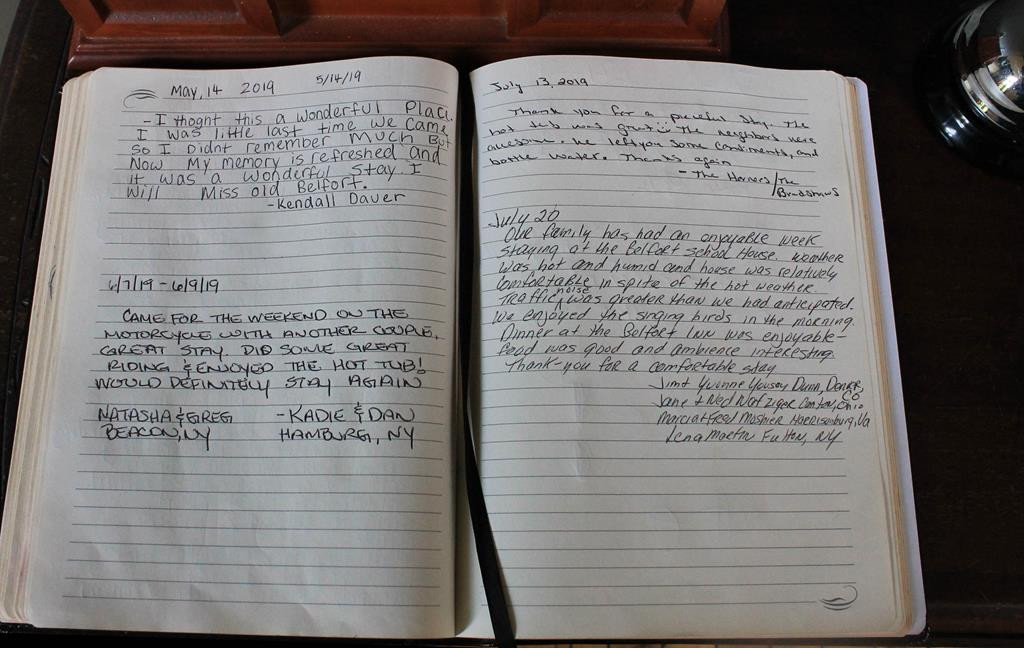 May, 14 2019 5/14/19
- I thoght this a wonderful Place.
I was little last time we came
So I didnt remember Much But
Now My memory is refreshed and
it was a wonderful stay. I
Will Miss old Belfort.
- Kendall Dauer
6/7/19 - 6/9/19
CAME FOR THE WEEKEND ON THE
MOTORCYCLE WITH ANOTHER COUPLE,
GREAT STAY. DID SOME GREAT
RIDING & ENJOYED THE HOT TUB!
WOULD DEFINITELY STAY AGAIN
NATASHA & GREG - KADIE & DAN
BEACON, NY HAMBURG, NY
July 13, 2019
Thank you for a peaceful stay. The
hot tub was great :) The neighbors were
awesome. We left you some condiments, and
bottle water. Thanks again
- The Horners/The
Bradshaws
July 20
Our family has had an enjoyable week
staying at the Belfort School House. Weather
was hot and humid and house was relatively
comfortable in spite of the hot weather.
Traffic noise was greater than we had anticipated.
We enjoyed the singing birds in the morning.
Dinner at the Belfort Inn was enjoyable-
food was good and ambience interesting.
Thank-you for a comfortable stay
Jim & Yvonne Yousey Dunn, Denver, CO
Jane & Ned Nafziger Canton, Ohio
Marcia & Fred Moshier Harrisonburg, Va
Lena Martin Fulton, NY